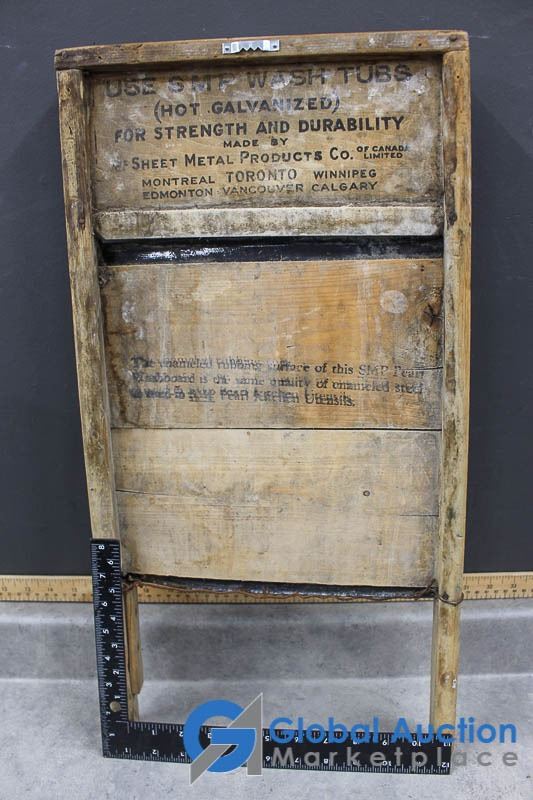 USE SMP WASH TUBS
(HOT GALVANIZED)
FOR STRENGTH AND DURABILITY
MADE BY
SHEET METAL PRODUCTS CO. OF CANADA LIMITED
MONTREAL TORONTO WINNIPEG
EDMONTON VANCOUVER CALGARY
The enameled rubbing surface of this SMP Pearl
Washboard is the same quality of enameled steel
as used in SMP Pearl Kitchen Utensils.
Global Auction
Marketplace